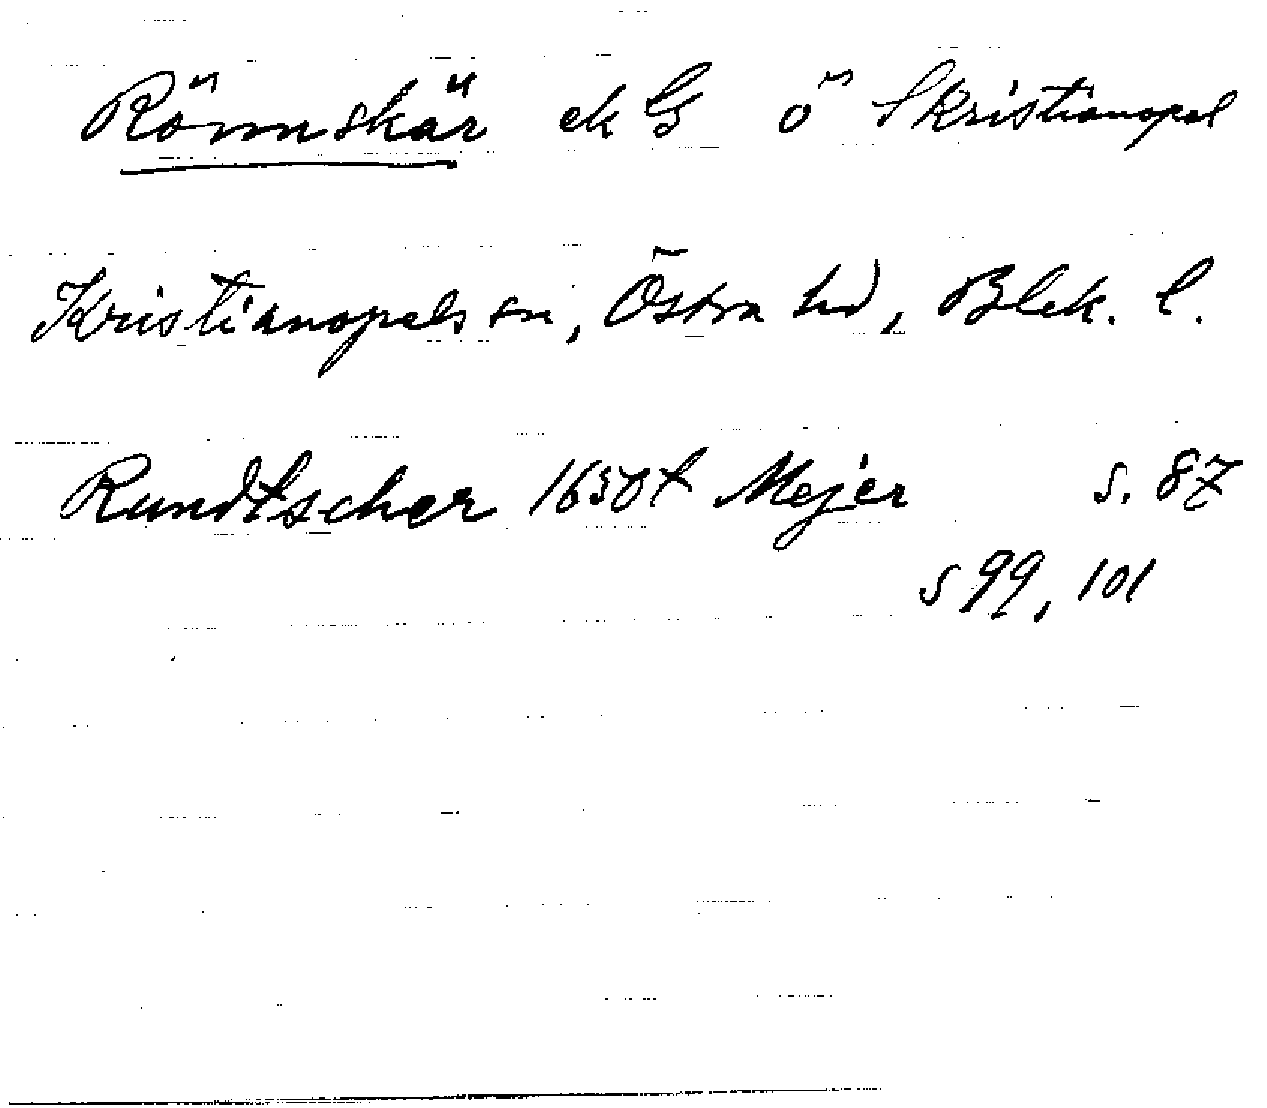 Rönnskär ek G ö S Kristianopel
Kristianopels sn, Östra hd, Blek. l.
Rundtscher 1650t Mejer s. 87
s 99, 101